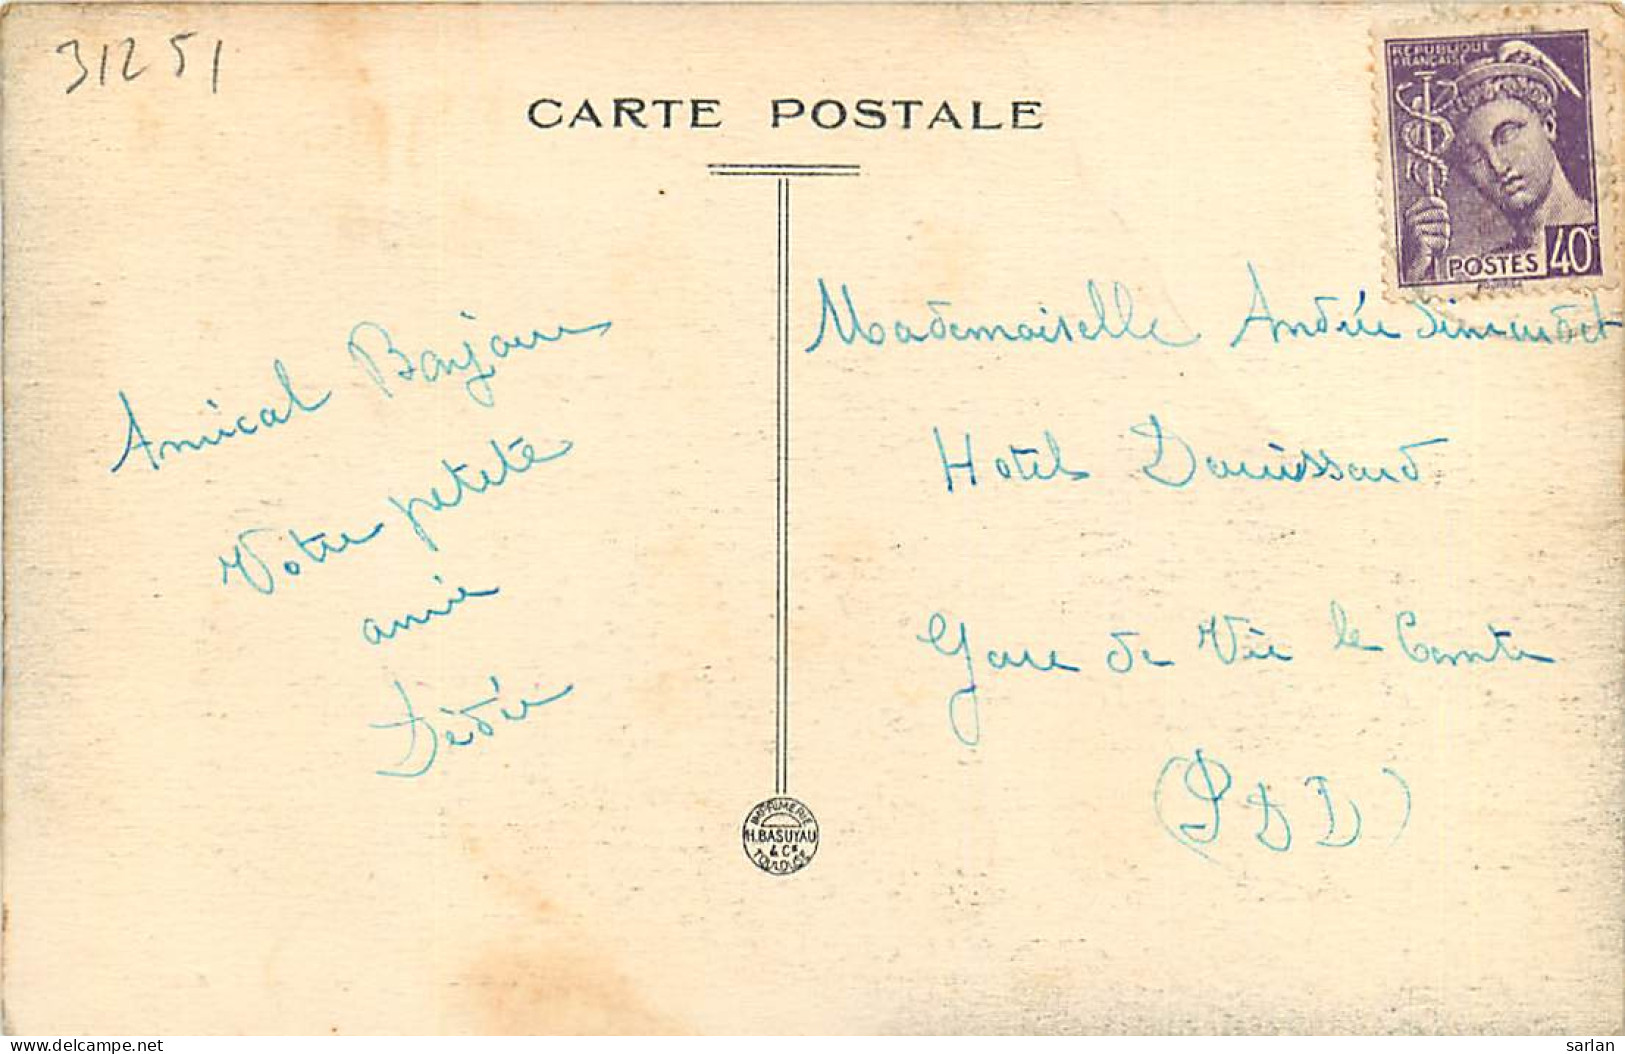 31251
CARTE POSTALE
REPUBLIQUE
FRANÇAISE
POSTES 40c
Amical Bonjour
Votre petite
amie
Dédée
Mademoiselle Andrée
Hotel
Gare de Vic le Comte
(P D D)
IMPRIMERIE
H. BASUYAU
& Cie
TOULOUSE
delcampe.net
sarlan